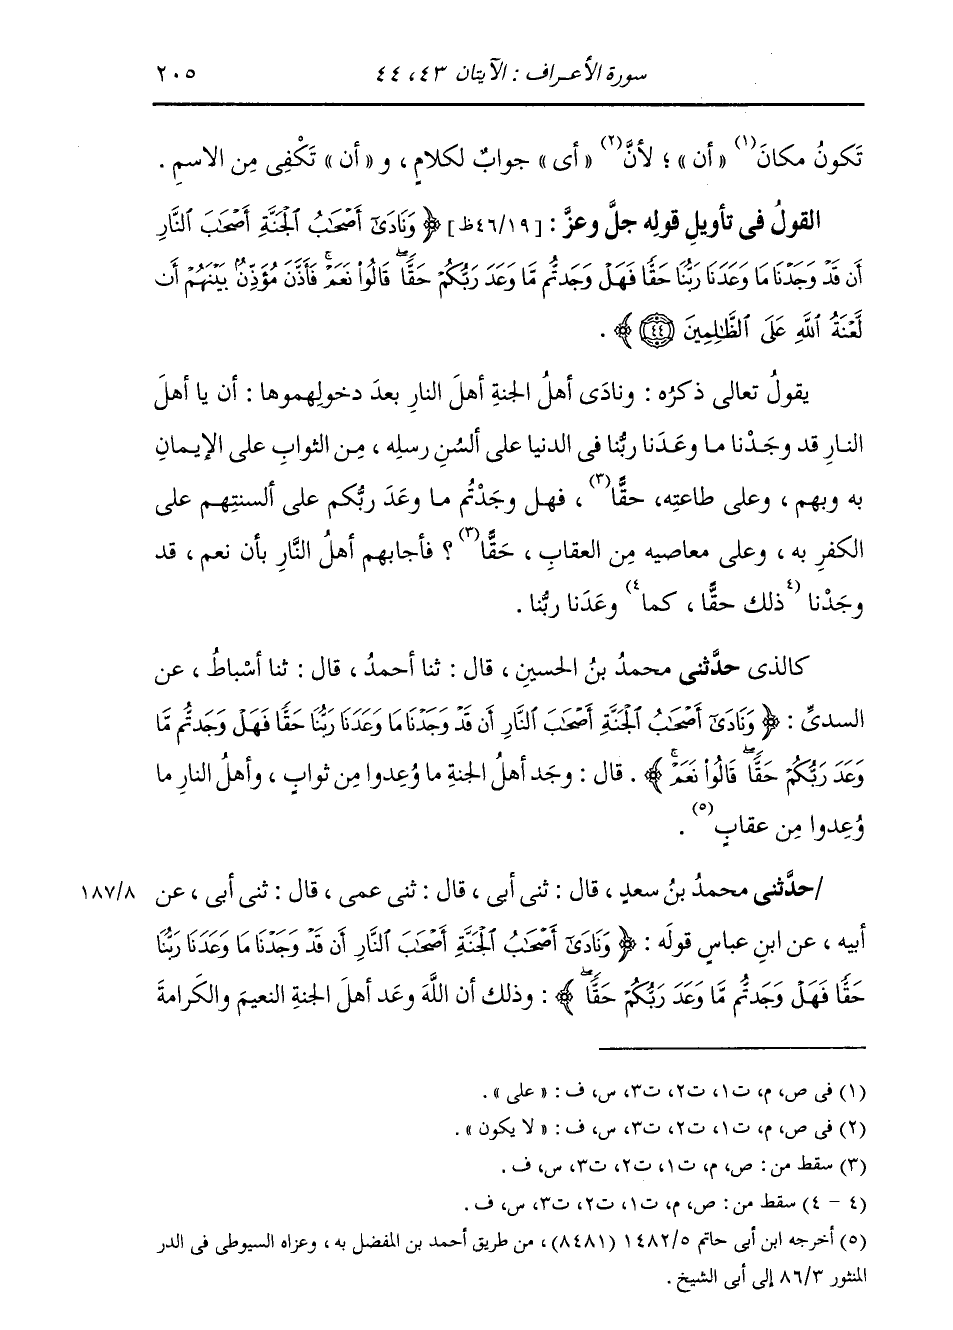 سورة الأعراف : الآيتان ٤٣، ٤٤ ٢٠٥
تَكونُ مكانَ(١) « أن » ؛ لأنَّ(٢) « أى » جوابٌ لكلامٍ ، و « أن » تَكْفِى مِن الاسمِ .
القولُ فى تأويلِ قولِه جلَّ وعزَّ : [٤٦/١٩ظ] ﴿ وَنَادَىٰٓ أَصْحَٰبُ ٱلْجَنَّةِ أَصْحَٰبَ ٱلنَّارِ
أَن قَدْ وَجَدْنَا مَا وَعَدَنَا رَبُّنَا حَقًّا فَهَلْ وَجَدتُّم مَّا وَعَدَ رَبُّكُمْ حَقًّا ۖ قَالُوا۟ نَعَمْ ۚ فَأَذَّنَ مُؤَذِّنٌۢ بَيْنَهُمْ أَن
لَّعْنَةُ ٱللَّهِ عَلَى ٱلظَّٰلِمِينَ ﴿٤٤﴾ ﴾ .
يقولُ تعالى ذكرُه : ونادَى أهلُ الجنةِ أهلَ النارِ بعدَ دخولِهموها : أن يا أهلَ
النارِ قد وجَدْنا ما وعَدَنا ربُّنا فى الدنيا على ألسُنِ رسلِه ، مِن الثوابِ على الإيمانِ
به وبهم ، وعلى طاعتِه، حقًّا(٣) ، فهل وجَدْتُم ما وعَدَ ربُّكم على ألسنتِهم على
الكفرِ به ، وعلى معاصيه مِن العقابِ ، حَقًّا(٣) ؟ فأجابهم أهلُ النَّارِ بأن نعم ، قد
وجَدْنا (٤ذلك حقًّا ، كما٤) وعَدَنا ربُّنا .
كالذى حدَّثنى محمدُ بنُ الحسينِ ، قال : ثنا أحمدُ ، قال : ثنا أسْباطُ ، عن
السدىِّ : ﴿ وَنَادَىٰٓ أَصْحَٰبُ ٱلْجَنَّةِ أَصْحَٰبَ ٱلنَّارِ أَن قَدْ وَجَدْنَا مَا وَعَدَنَا رَبُّنَا حَقًّا فَهَلْ وَجَدتُّم مَّا
وَعَدَ رَبُّكُمْ حَقًّا ۖ قَالُوا۟ نَعَمْ ۚ ﴾ . قال : وجَد أهلُ الجنةِ ما وُعِدوا مِن ثوابٍ ، وأهلُ النارِ ما
وُعِدوا مِن عقابٍ(٥) .
/حدَّثنى محمدُ بنُ سعدٍ ، قال : ثنى أبى ، قال : ثنى عمى ، قال : ثنى أبى ، عن ١٨٧/٨
أبيه ، عن ابنِ عباسٍ قولَه : ﴿ وَنَادَىٰٓ أَصْحَٰبُ ٱلْجَنَّةِ أَصْحَٰبَ ٱلنَّارِ أَن قَدْ وَجَدْنَا مَا وَعَدَنَا رَبُّنَا
حَقًّا فَهَلْ وَجَدتُّم مَّا وَعَدَ رَبُّكُمْ حَقًّا ۖ ﴾ : وذلك أن اللَّهَ وعَد أهلَ الجنةِ النعيمَ والكَرامةَ
(١) فى ص، م، ت١، ت٢، ت٣، س، ف : « على » .
(٢) فى ص، م، ت١، ت٢، ت٣، س، ف : « لا يكون » .
(٣) سقط من : ص، م، ت١، ت٢، ت٣، س، ف .
(٤ - ٤) سقط من : ص، م، ت١، ت٢، ت٣، س، ف .
(٥) أخرجه ابن أبى حاتم ١٤٨٢/٥ (٨٤٨١)، من طريق أحمد بن المفضل به ، وعزاه السيوطى فى الدر
المنثور ٨٦/٣ إلى أبى الشيخ .